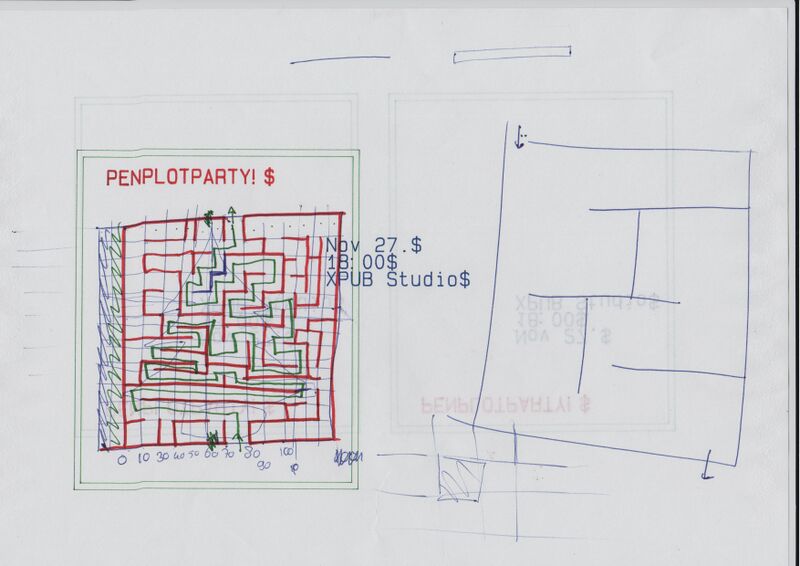 PENPLOTPARTY! $
Nov 27.$
18:00$
XPUB Studio$
XPUB Studio$
18:00$
Nov 27.$
PENPLOTPARTY! $
0 10 20 30 40 50 60 70 80 90 100